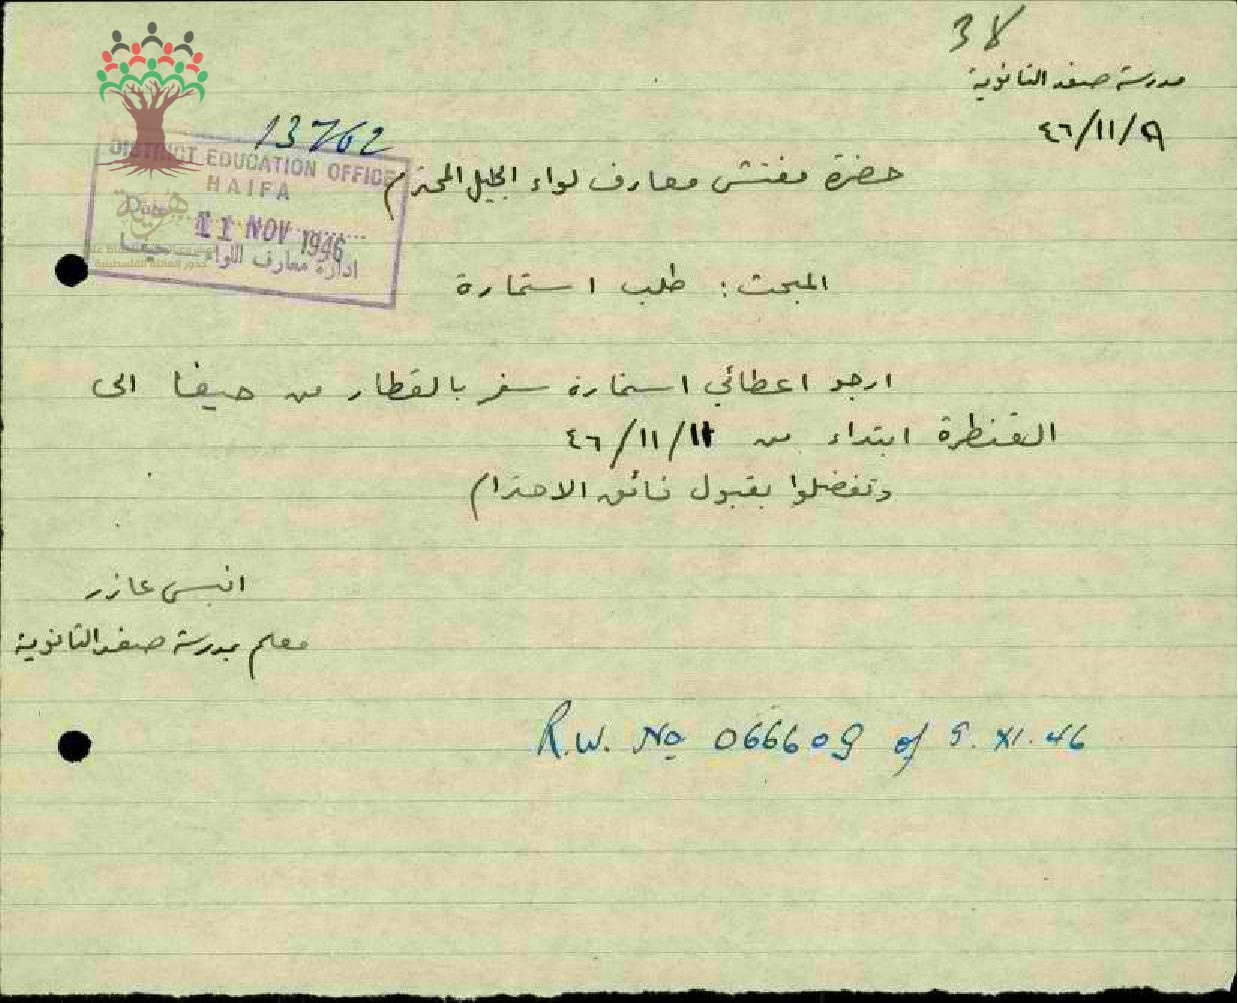 38
مدرسة صفد الثانوية
٩/١١/٤٦
13762
DISTRICT EDUCATION OFFICE
HAIFA
Date
11 NOV 1946
ادارة معارف اللواء - حيفا
هوية
جذور العائلة الفلسطينية
حضرة مفتش معارف لواء الجليل المحترم
المبحث: طلب استمارة
ارجو اعطائي استمارة سفر بالقطار من حيفا الى
القنطرة ابتداء من ١١/١١/٤٦
وتفضلوا بقبول فائق الاحترام
انيس عازر
معلم بمدرسة صفد الثانوية
R.W. No 066609 of 9.XI.46